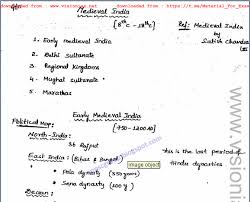 downloaded from : www.visionias.net downloaded from : https://t.me/Material_For_Exam
Medieval India
[8th C - 18th C]
Ref: Medieval India
by
Satish Chandra
1. Early medieval India
2. Delhi Sultanate
3. Regional Kingdoms
4. Mughal Sultanate
5. Marathas
Early Medieval India
(750 - 1200 AD)
Political Map:
North-India:
Rajput
East India: (Bihar & Bengal)
Pala dynasty (350 years)
Sena dynasty (100 y)
this is the last period of
Hindu dynasties
Image object
Deccan:
www.visionia